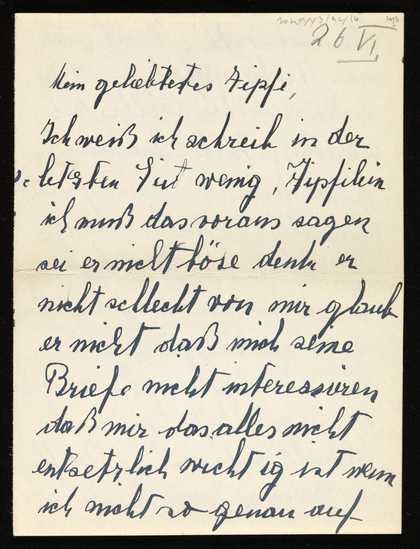 26 VI
Mein geliebtestes Zipfi,
Ich weiß ich schreib in der
letzten Zeit wenig, Zipfilein
ich muß das voraus sagen
sei er nicht böse denk er
nicht schlecht von mir glaub
er nicht daß mich seine
Briefe nicht interessieren
daß mir das alles nicht
entsetzlich wichtig ist wenn
ich nicht so genau auf